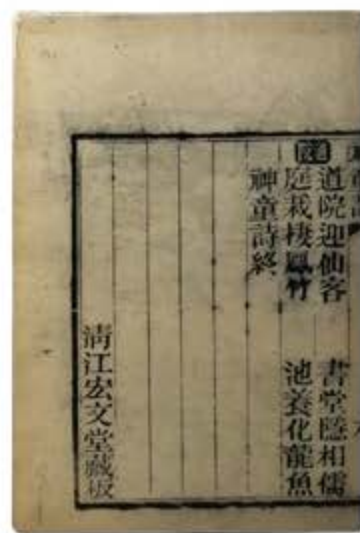 道院迎仙客　書堂隱相儒
庭栽棲鳳竹　池養化龍魚
神童詩終
清江宏文堂藏板